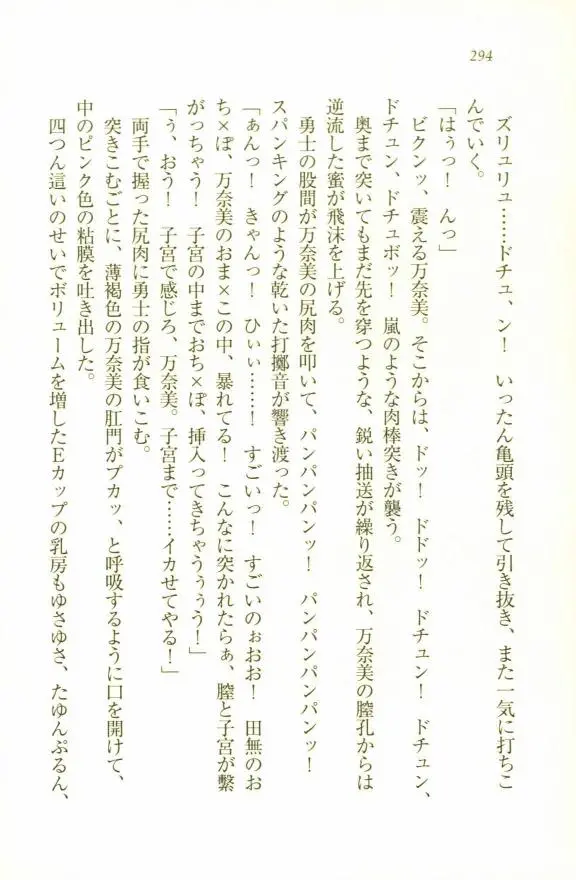 294
ズリュリュ……ドチュ、ン！　いったん亀頭を残して引き抜き、また一気に打ちこ
んでいく。
「はぅっ！　んっ」
ビクンッ、震える万奈美。そこからは、ドッ！　ドドッ！　ドチュン！　ドチュン、
ドチュン、ドチュボッ！　嵐のような肉棒突きが襲う。
奥まで突いてもまだ先を穿つような、鋭い抽送が繰り返され、万奈美の膣孔からは
逆流した蜜が飛沫を上げる。
勇士の股間が万奈美の尻肉を叩いて、パンパンパンッ！　パンパンパンパンッ！
スパンキングのような乾いた打擲音が響き渡った。
「ぁんっ！　きゃんっ！　ひぃぃ……！　すごいっ！　すごいのぉおお！　田無のお
ち×ぽ、万奈美のおま×この中、暴れてる！　こんなに突かれたらぁ、膣と子宮が繋
がっちゃう！　子宮の中までおち×ぽ、挿入ってきちゃうぅぅう！」
「ぅ、おう！　子宮で感じろ、万奈美。子宮まで……イカせてやる！」
両手で握った尻肉に勇士の指が食いこむ。
突きこむごとに、薄褐色の万奈美の肛門がプカッ、と呼吸するように口を開けて、
中のピンク色の粘膜を吐き出した。
四つん這いのせいでボリュームを増したＥカップの乳房もゆさゆさ、たゆんぷるん、